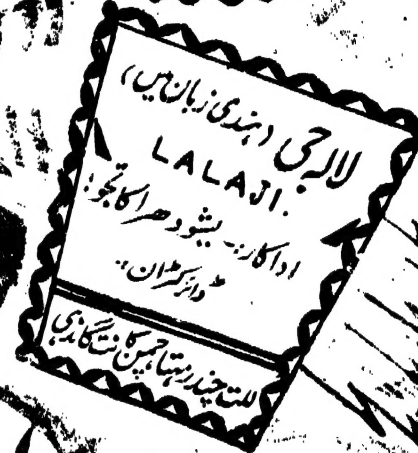 لالہ جی (ہندی زبان میں)
LALAJI.
اداکار:۔ یشودھرا کاٹجو؛
ڈائرکٹران:۔
للت چندر مہتا چمن کانت گاندھی